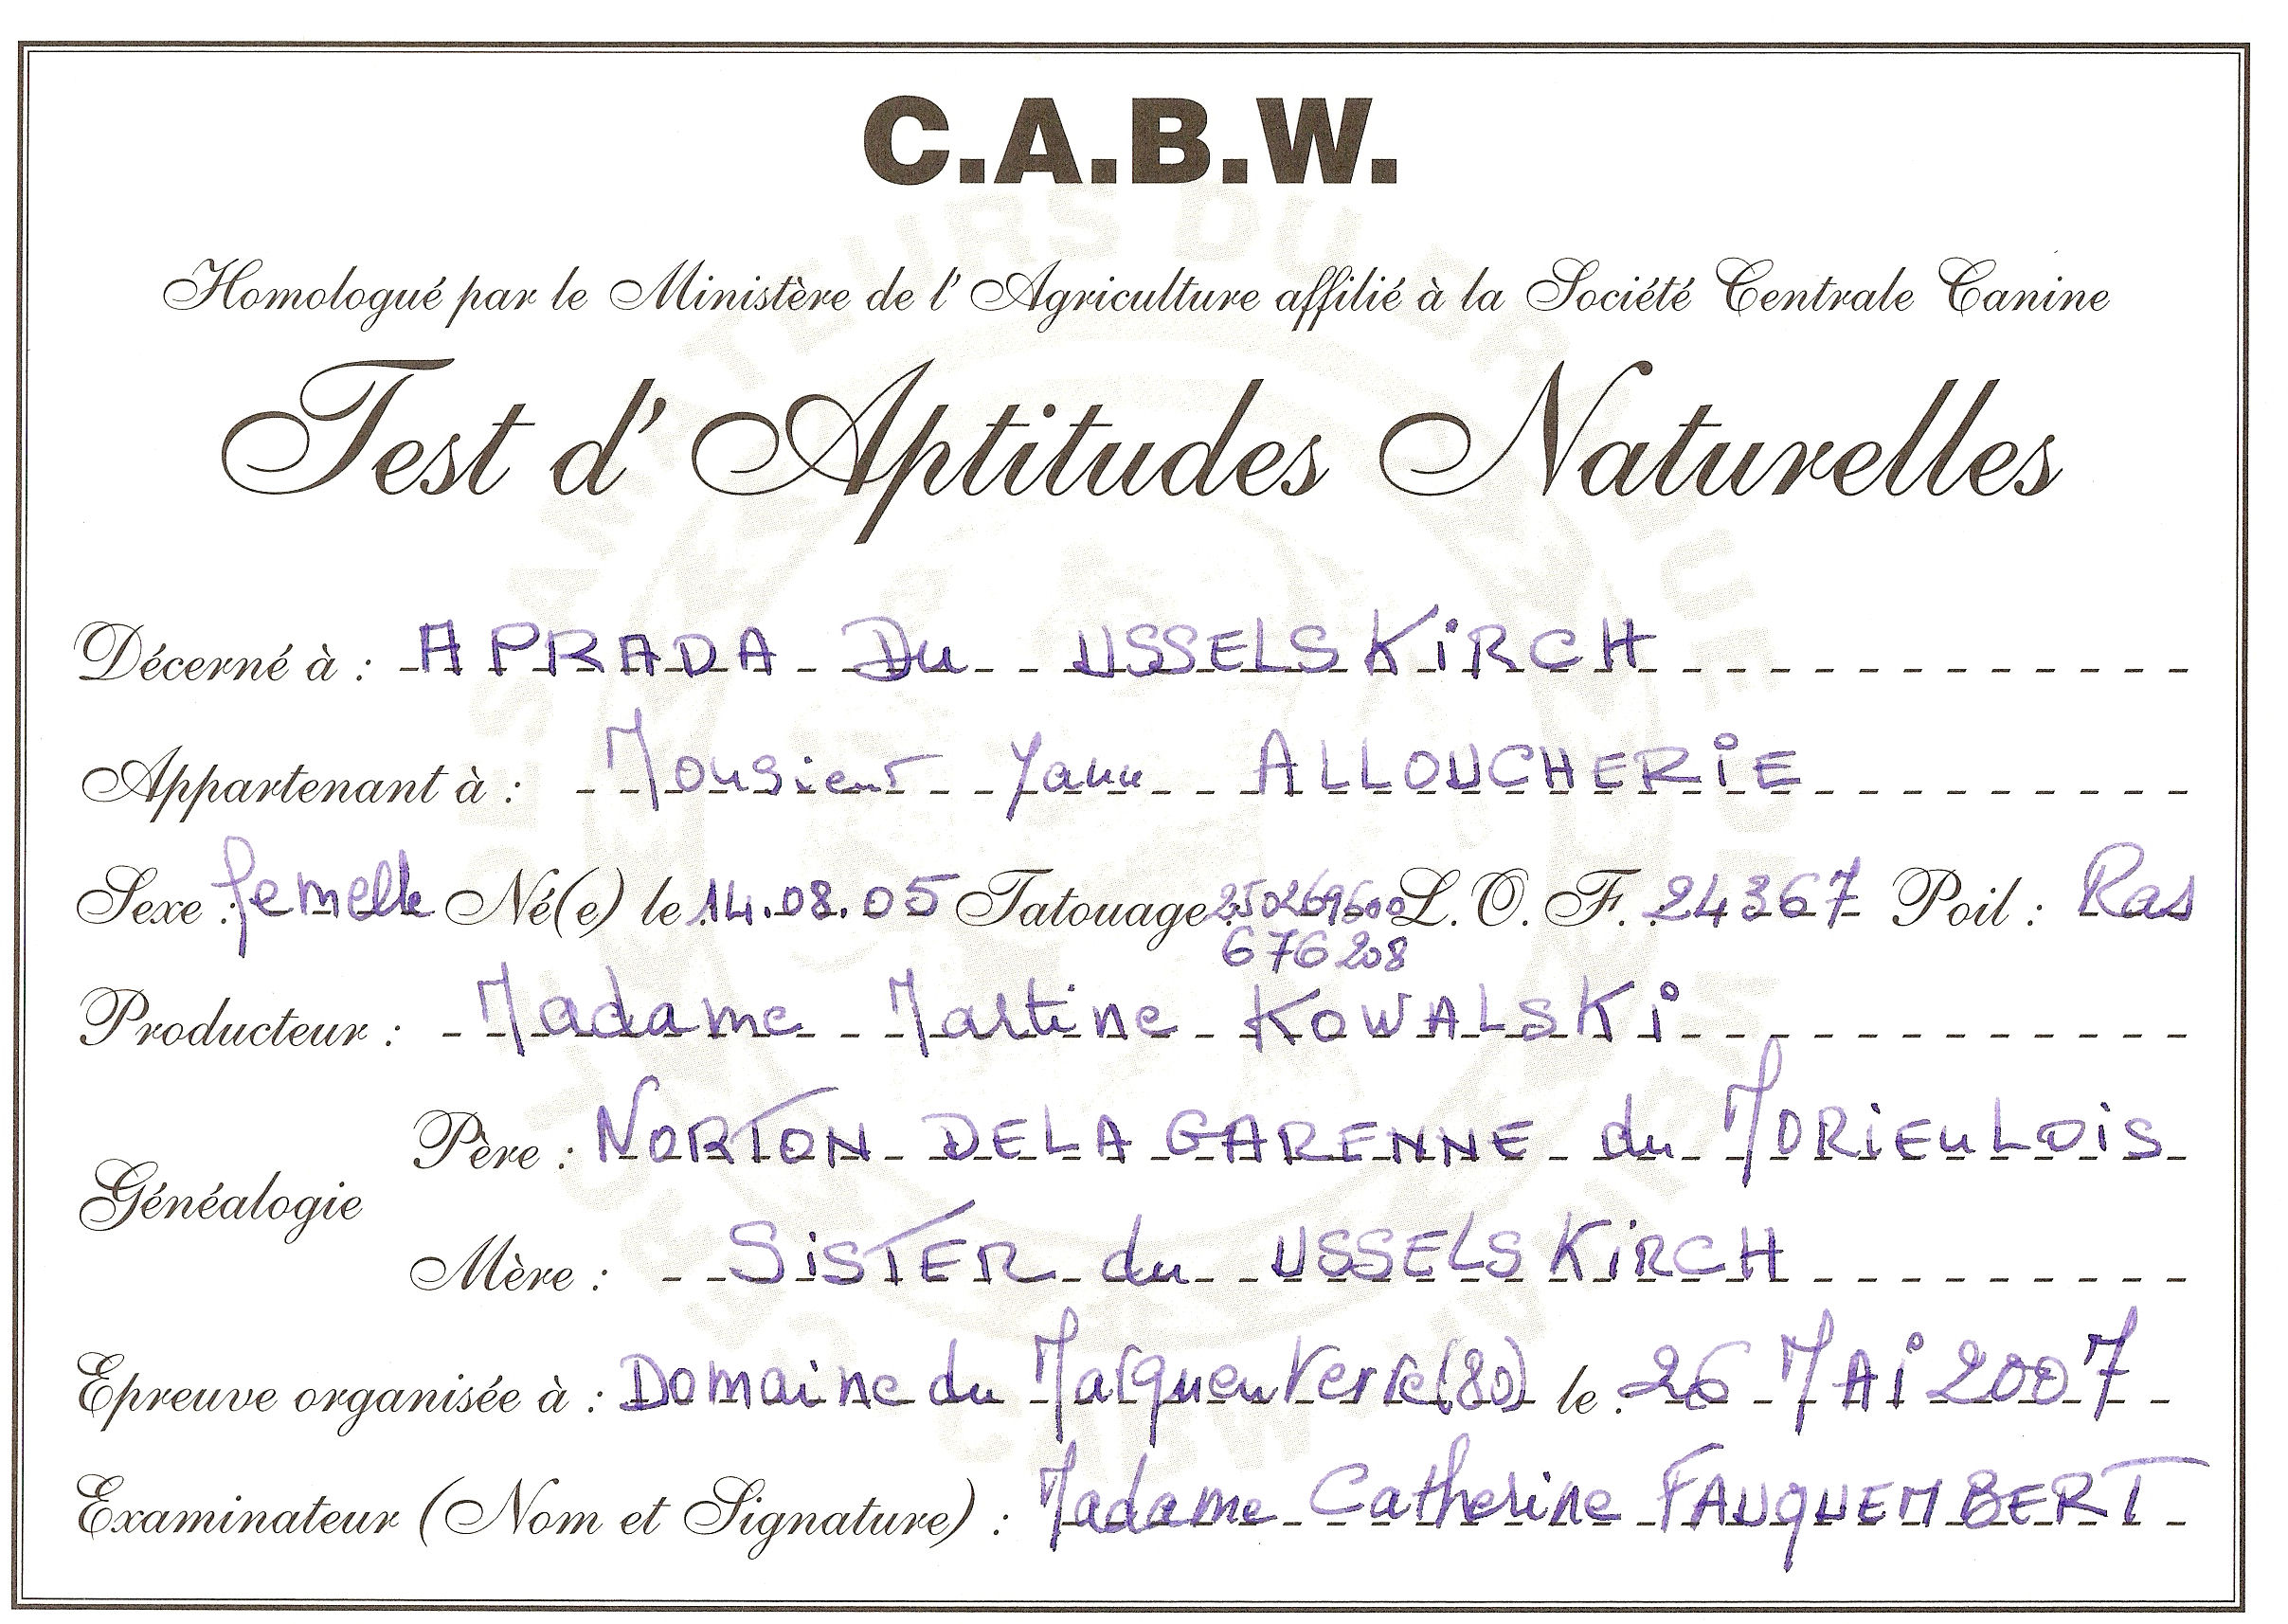 C.A.B.W.
Homologué par le Ministère de l' Agriculture affilié à la Société Centrale Canine
Test d' Aptitudes Naturelles
Décerné à : APRADA Du USSELSKiRCH
Appartenant à : Monsieur Yann ALLOUCHERiE
Sexe : femelle Né(e) le 14.08.05 Tatouage 250269600 L. O. F. 24367 Poil : Ras
676208
Producteur : Madame Martine KOWALSKi
Père : NORTON DE LA GARENNE du MORiEuLOiS
Généalogie
Mère : SiSTER du USSELSKiRCH
Epreuve organisée à : Domaine du Marquenterre (80) le : 26 MAi 2007
Examinateur (Nom et Signature) : Madame Catherine FAUQUEMBERT